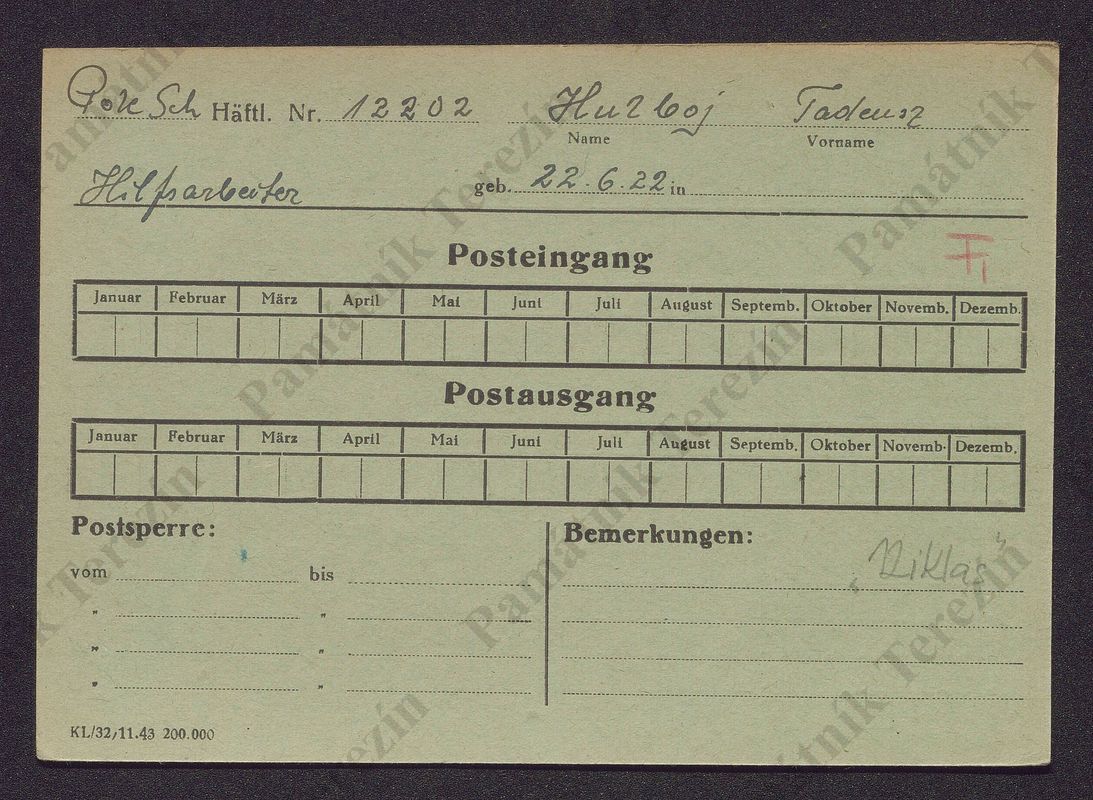 Pole Sch Häftl. Nr. 12202 Hulboj Tadeusz
Name Vorname
Hilfsarbeiter geb. 22.6.22 in
Posteingang
Januar Februar März April Mai Juni Juli August Septemb. Oktober Novemb. Dezemb.
Postausgang
Januar Februar März April Mai Juni Juli August Septemb. Oktober Novemb. Dezemb.
Postsperre: Bemerkungen:
vom bis
" "
" "
" "
KL/32/11.43 200.000
Památník Terezín